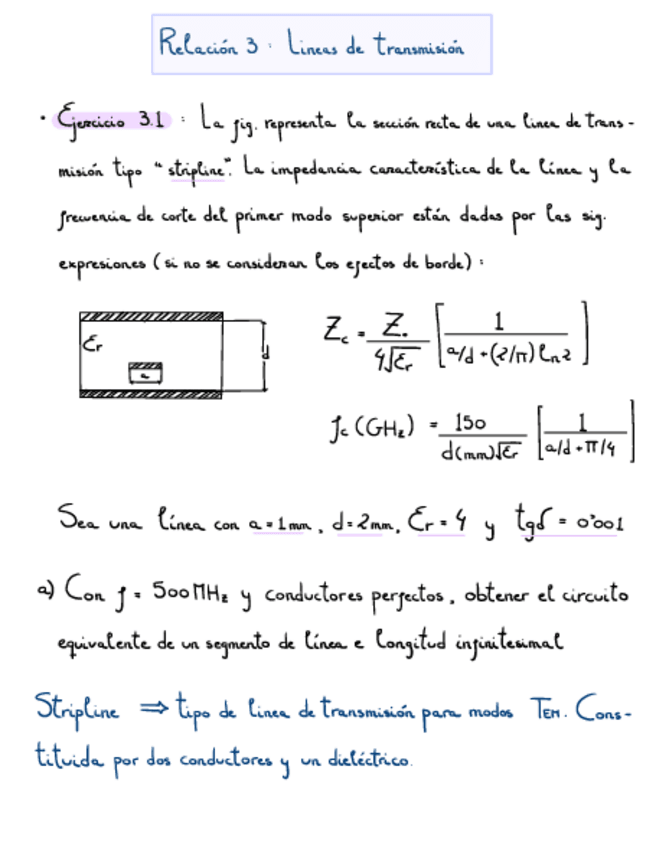 Relación 3: Lineas de transmisión
• Ejercicio 3.1: La fig. representa la sección recta de una linea de trans-
misión tipo "stripline". La impedancia característica de la línea y la
frecuencia de corte del primer modo superior están dadas por las sig.
expresiones (si no se consideran los efectos de borde):
Ɛr
a
d
Zc = Z₀/(4√Ɛr) [1/(a/d + (2/π) Ln2)]
fc (GHz) = 150/(d(mm)√Ɛr) [1/(a/d + π/4)]
Sea una línea con a = 1mm, d = 2mm, Ɛr = 4 y tgδ = 0'001
a) Con f = 500 MHz y conductores perfectos, obtener el circuito
equivalente de un segmento de línea e longitud infinitesimal
Stripline ⇒ tipo de linea de transmisión para modos TEM. Cons-
tituida por dos conductores y un dieléctrico.